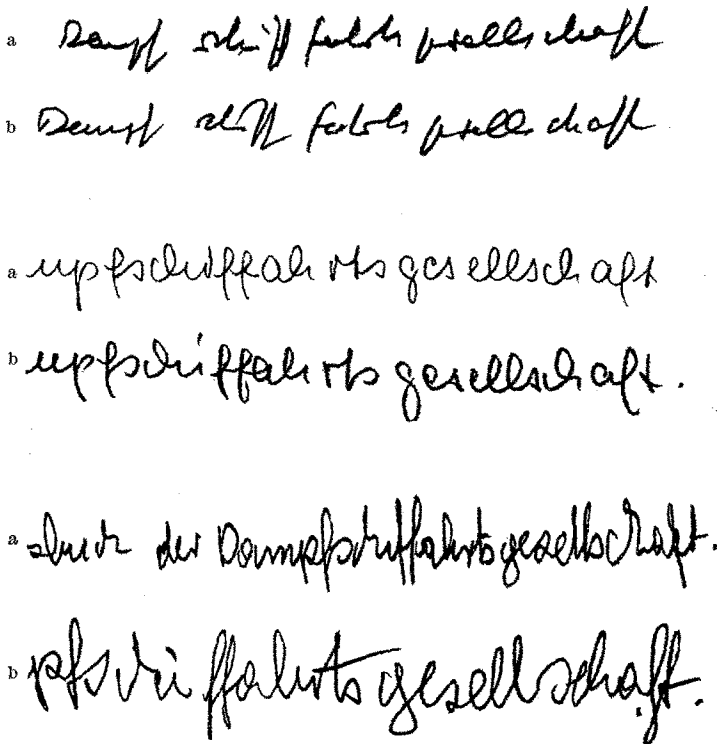 a Dampf schiff fahrts gesellschaft
b Dampf schiff fahrts gesellschaft
a mpfschiffahrtsgesellschaft
b mpfschiffahrtsgesellschaft.
a der Dampfschiffahrtsgesellschaft.
b pfschiffahrtsgesellschaft.